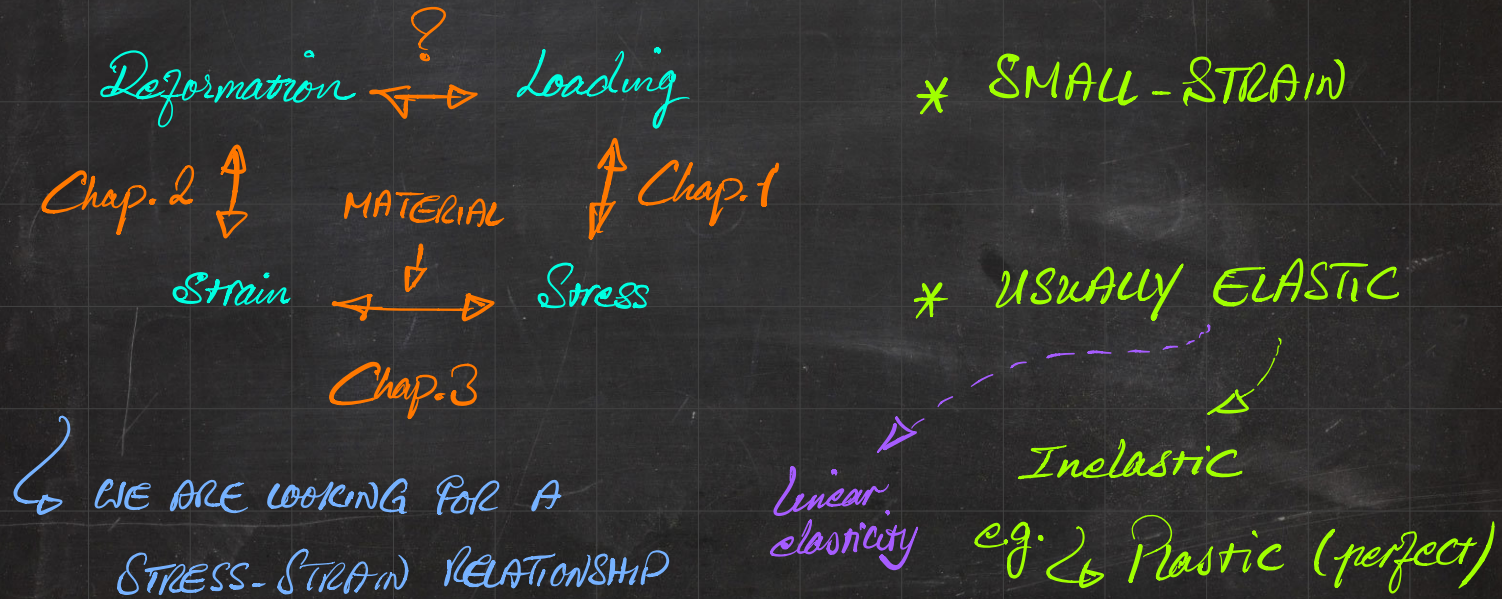 ?
Deformation Loading
Chap. 2 MATERIAL Chap. 1
Strain Stress
Chap. 3
WE ARE LOOKING FOR A
STRESS-STRAIN RELATIONSHIP
* SMALL-STRAIN
* USUALLY ELASTIC
Linear
elasticity
Inelastic
e.g. Plastic (perfect)